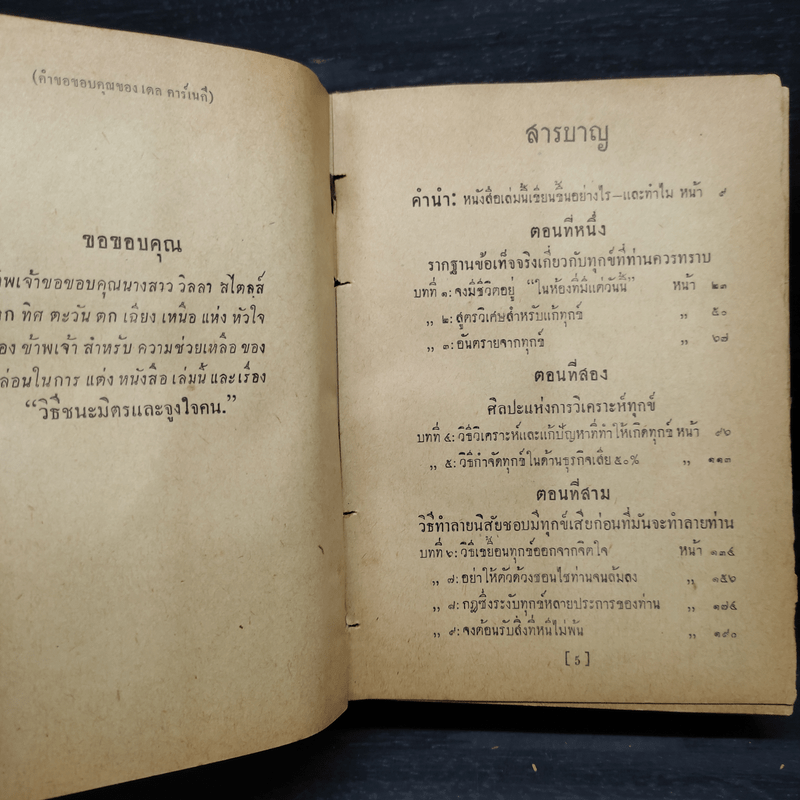 (คำขอชอบคุณของ เดล คาร์เนกี)
ขอขอบคุณ
พเจ้าขอขอบคุณนางสาว วิลลา สไตลส์
ทิศ ตะวัน ตก เฉียง เหนือ แห่ง หัวใจ
ข้าพเจ้า สำหรับ ความช่วยเหลือ ของ
ล่อนในการ แต่ง หนังสือ เล่มนี้ และเรื่อง
“วิธีชนะมิตรและจูงใจคน.”
สารบาญ
คำนำ: หนังสือเล่มนี้เขียนขึ้นอย่างไร—และทำไม หน้า ๙
ตอนที่หนึ่ง
รากฐานข้อเท็จจริงเกี่ยวกับทุกข์ที่ท่านควรทราบ
บทที่ ๑: จงมีชีวิตอยู่ “ในห้องที่มีแต่วันนี้” หน้า ๒๓
,, ๒: สูตรวิเศษสำหรับแก้ทุกข์ ,, ๕๐
,, ๓: อันตรายจากทุกข์ ,, ๖๘
ตอนที่สอง
ศิลปะแห่งการวิเคราะห์ทุกข์
บทที่ ๔: วิธีวิเคราะห์และแก้ปัญหาที่ทำให้เกิดทุกข์ หน้า ๙๖
,, ๕: วิธีกำจัดทุกข์ในด้านธุรกิจเสีย ๕๐% ,, ๑๑๓
ตอนที่สาม
วิธีทำลายนิสัยชอบมีทุกข์เสียก่อนที่มันจะทำลายท่าน
บทที่ ๖: วิธีเขยื้อนทุกข์ออกจากจิตใจ หน้า ๑๓๔
,, ๗: อย่าให้ตัวด้วงชอนไชท่านจนล้มลง ,, ๑๕๖
,, ๘: กฎซึ่งระงับทุกข์หลายประการของท่าน ,, ๑๗๔
,, ๙: จงต้อนรับสิ่งที่หนีไม่พ้น ,, ๑๙๐
[ 5 ]